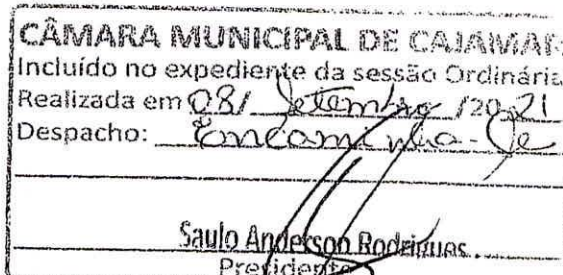 CÂMARA MUNICIPAL DE CAJAMAR
Incluído no expediente da sessão Ordinária
Realizada em 08/ Setembro /2021
Despacho: Encaminha-se
Saulo Anderson Rodrigues
Presidente